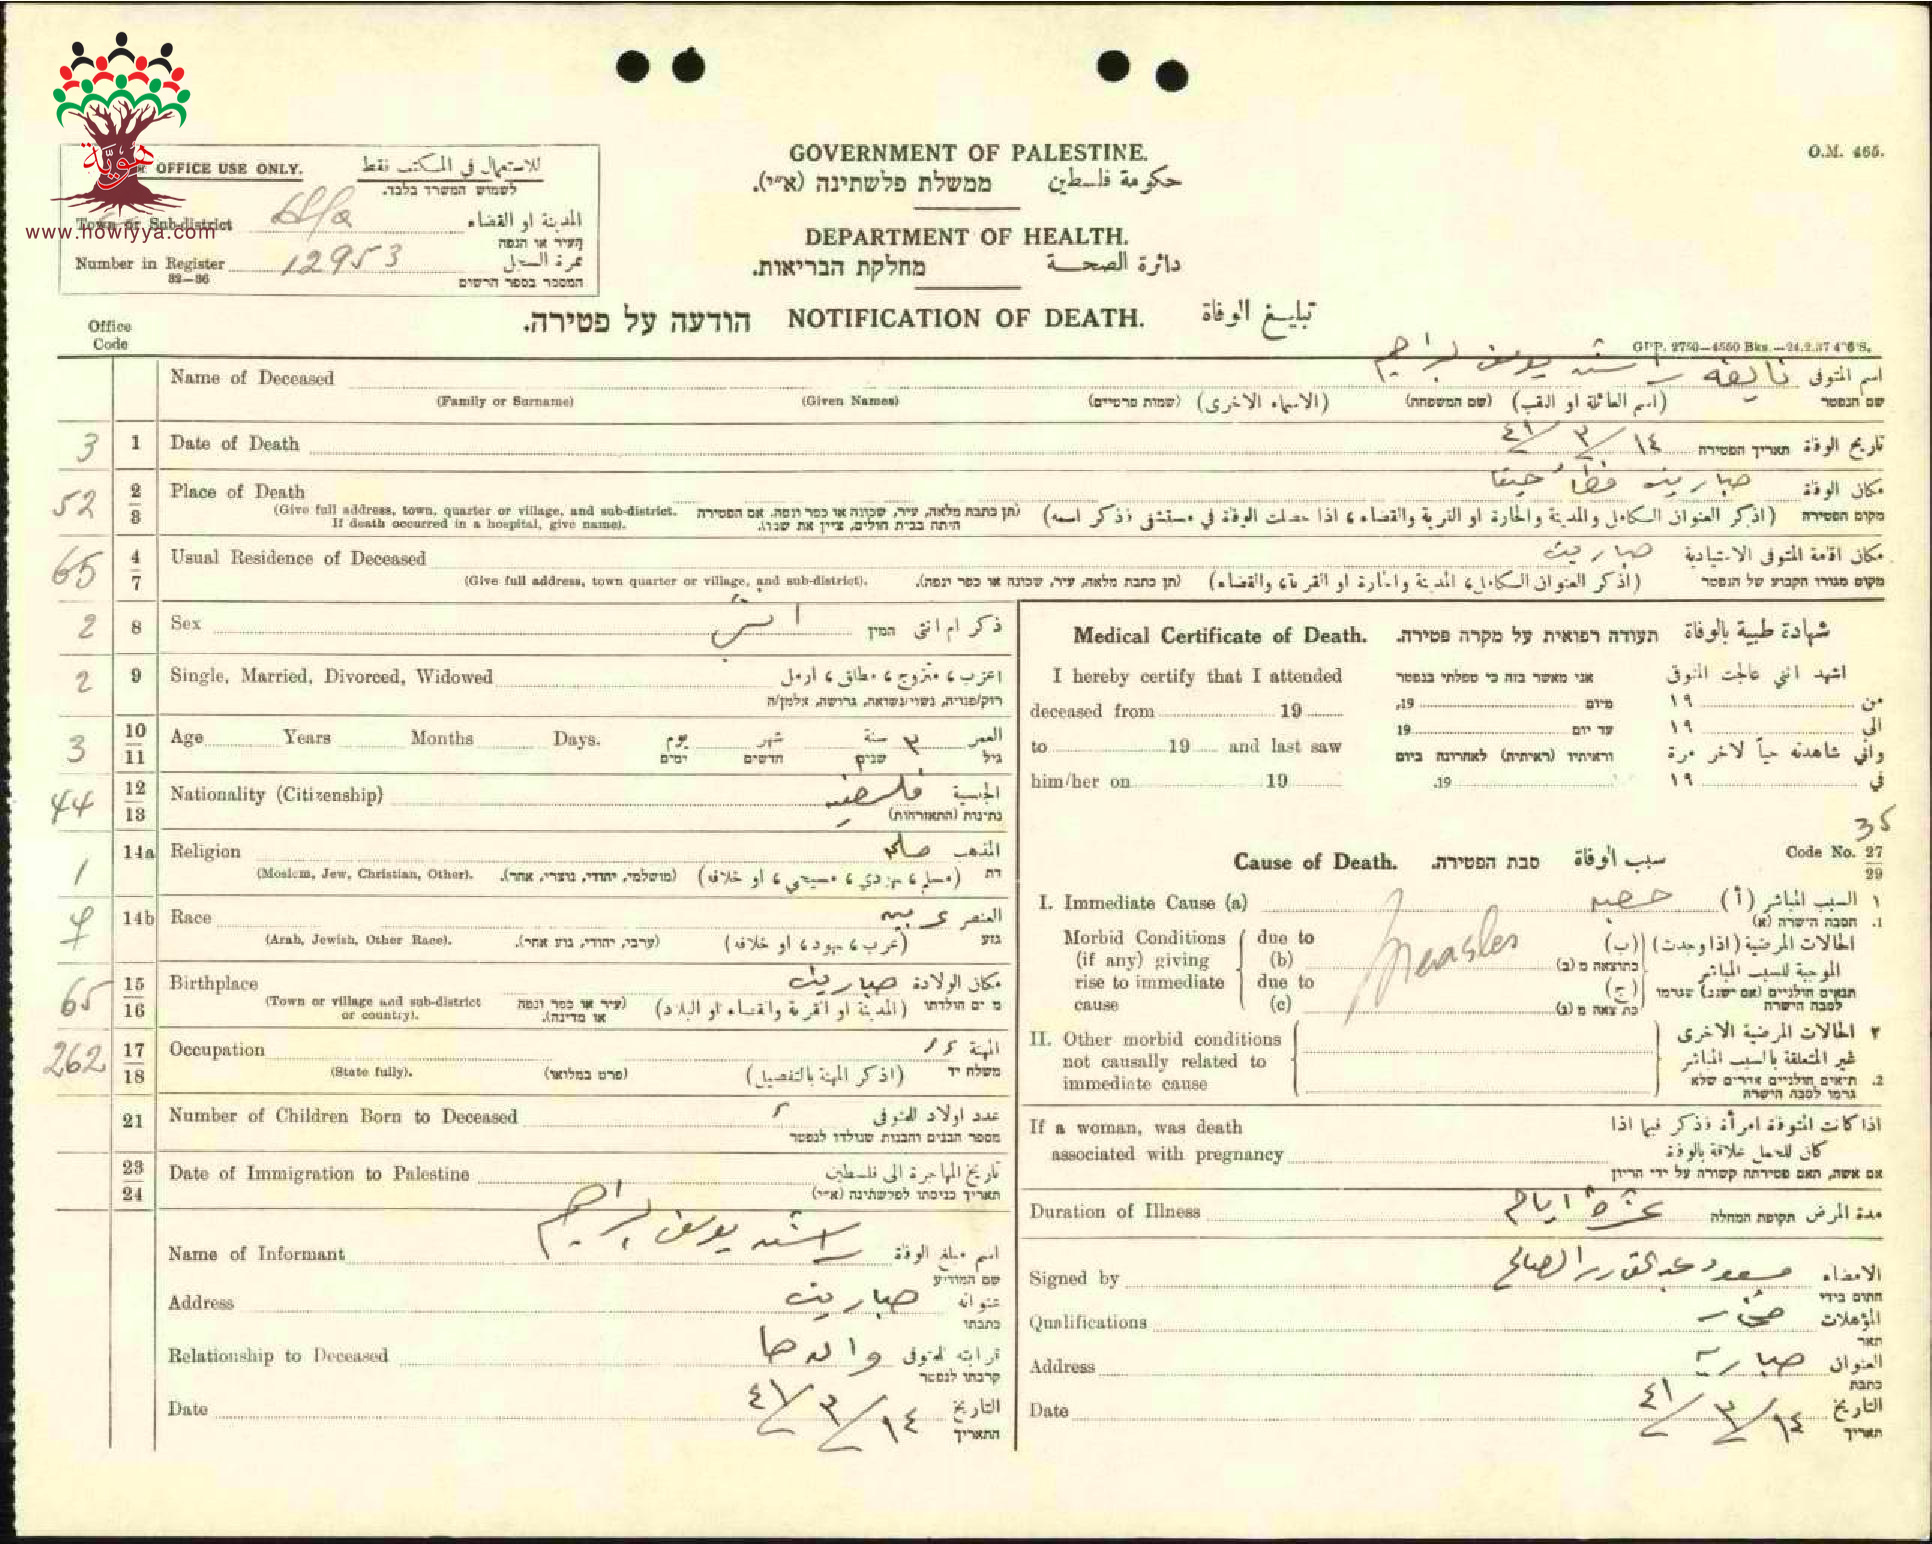 هويّة
www.howiyya.com
OFFICE USE ONLY. للاستعمال في المكتب فقط
לשמוש המשרד בלבד.
Town or Sub-district المدينة او القضاء
העיר או הנפה
Number in Register 12953 نمرة السجل
32—36 המספר בספר הרשום
GOVERNMENT OF PALESTINE.
ממשלת פלשתינה (א״י). حكومة فلسطين
DEPARTMENT OF HEALTH.
מחלקת הבריאות. دائرة الصحة
O.M. 465.
הודעה על פטירה. NOTIFICATION OF DEATH. تبليغ الوفاة
Office Code
Name of Deceased نايفه راشد يوسف ابراهيم اسم المتوفى
(Family or Surname) (Given Names) (שמות פרטיים) (الاسماء الاخرى) (שם המשפחה) (اسم العائلة او اللقب) שם הנפטר
3 1 Date of Death ١٤/٣/٤١ תאריך הפטירה تاريخ الوفاة
52 2/3 Place of Death صبارين قضاء حيفا مكان الوفاة
(Give full address, town, quarter or village, and sub-district. If death occurred in a hospital, give name). (תן כתבת מלאה, עיר, שכונה או כפר ונפה. אם הפטירה היתה בבית חולים, ציין את שמו). (اذكر العنوان الكامل والمدينة والحارة او القرية والقضاء، اذا حصلت الوفاة في مستشفى فذكر اسمه) מקום הפטירה
65 4/7 Usual Residence of Deceased صبارين مكان اقامة المتوفى الاعتيادية
(Give full address, town quarter or village, and sub-district). (תן כתבת מלאה, עיר, שכונה או כפר ונפה). (اذكر العنوان الكامل، المدينة والحارة او القرية، والقضاء) מקום מגורו הקבוע של הנפטר
2 8 Sex انثى המין ذكر ام انثى
2 9 Single, Married, Divorced, Widowed اعزب، متزوج، مطلق، ارمل
רוק/פנויה, נשוי/נשואה, גרוש/ה, אלמן/ה
3 10/11 Age Years Months Days. يوم شهر سنة ٣ العمر
ימים חדשים שנים גיל
44 12/13 Nationality (Citizenship) فلسطينيه الجنسية
נתינות (התאזרחות)
1 14a Religion مسلمه المذهب
(Moslem, Jew, Christian, Other). (מושלמי, יהודי, נוצרי, אחר). (مسلم، يهودي، مسيحي، او خلافه) דת
14b Race عربيه العنصر
(Arab, Jewish, Other Race). (ערבי, יהודי, גזע אחר). (عرب، يهود، او خلافه) גזע
65 15/16 Birthplace صبارين مكان الولادة
(Town or village and sub-district or country). (עיר או כפר ונפה או מדינה). (المدينة او القرية والقضاء او البلاد) מקום הולדתו
262 17/18 Occupation المهنة
(State fully). (פרט במלואו) (اذكر المهنة بالتفصيل) משלח יד
21 Number of Children Born to Deceased عدد اولاد المتوفى
מספר הבנים והבנות שנולדו לנפטר
23/24 Date of Immigration to Palestine تاريخ المهاجرة الى فلسطين
תאריך כניסתו לפלשתינה (א״י)
Name of Informant راشد يوسف ابراهيم اسم مبلغ الوفاة
שם המודיע
Address صبارين عنوانه
כתבתו
Relationship to Deceased والدها قرابته للمتوفى
קרבתו לנפטר
Date ١٤/٣/٤١ التاريخ
התאריך
Medical Certificate of Death. תעודה רפואית על מקרה פטירה. شهادة طبية بالوفاة
I hereby certify that I attended אני מאשר בזה כי טפלתי בנפטר اشهد انني عالجت المتوفى
deceased from 19 19, מיום ١٩ من
to 19 and last saw 19 עד יום ١٩ الى
וראיתיו (ראיתיה) לאחרונה ביום واني شاهدته حياً لاخر مرة
him/her on 19 19. ١٩ في
35
Cause of Death. סבת הפטירה. سبب الوفاة Code No. 27/29
I. Immediate Cause (a) حصبه ١ السبب المباشر (أ)
1. הסבה הישרה (א)
Measles
Morbid Conditions (if any) giving rise to immediate cause due to (b) due to (c)
الحالات المرضية (اذا وجدت) (ب) الموجبة للسبب المباشر (ج)
כתוצאה מ (ב) תנאים חולניים (אם ישנם) שגרמו לסבה הישרה כתוצאה מ (ג)
II. Other morbid conditions not causally related to immediate cause
٢ الحالات المرضية الاخرى غير المتعلقة بالسبب المباشر
2. תנאים חולניים אחרים שלא גרמו לסבה הישרה
If a woman, was death associated with pregnancy
اذا كانت المتوفاة امرأة فذكر فيما اذا كان للحمل علاقة بالوفاة
אם אשה, האם פטירתה קשורה על ידי הריון
Duration of Illness عشرة ايام תקופת המחלה مدة المرض
Signed by مسعود عبد القادر الصالح الامضاء
חתום בידי
Qualifications مختار المؤهلات
תאר
Address صبارين العنوان
כתבת
Date ١٤/٣/٤١ التاريخ
תאריך